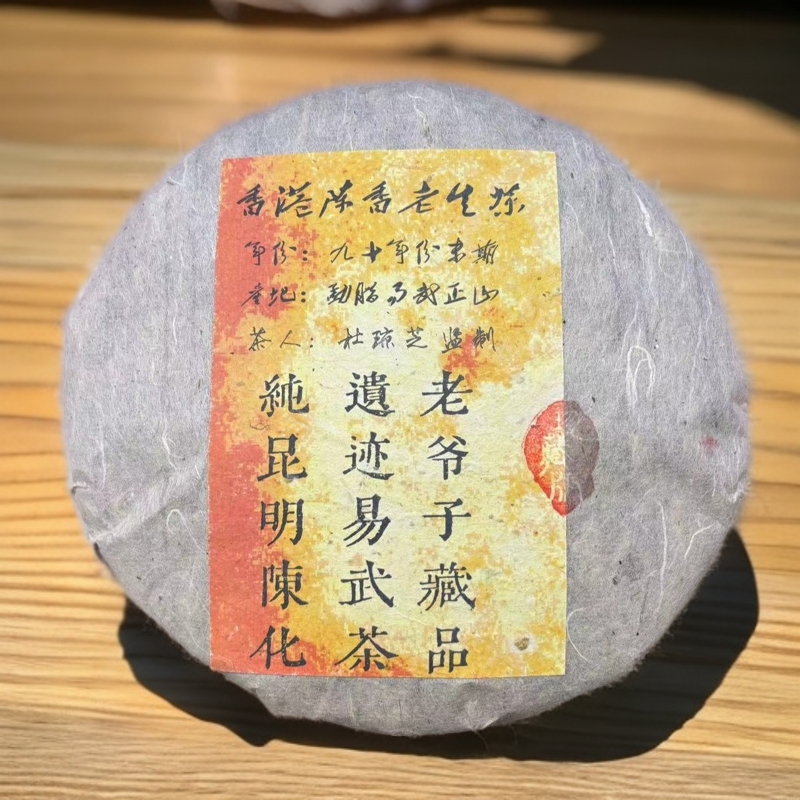 香港陈香老生茶
年份：九十年份末期
产地：勐腊易武正山
茶人：杜琼芝监制
老爷子藏品
遺迹易武茶
純昆明陳化